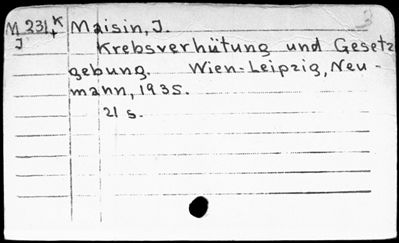 M 231 K Maisin, J.
J Krebsverhütung und Gesetz
gebung. Wien-Leipzig, Neu-
mann, 1935.
21 s.
3